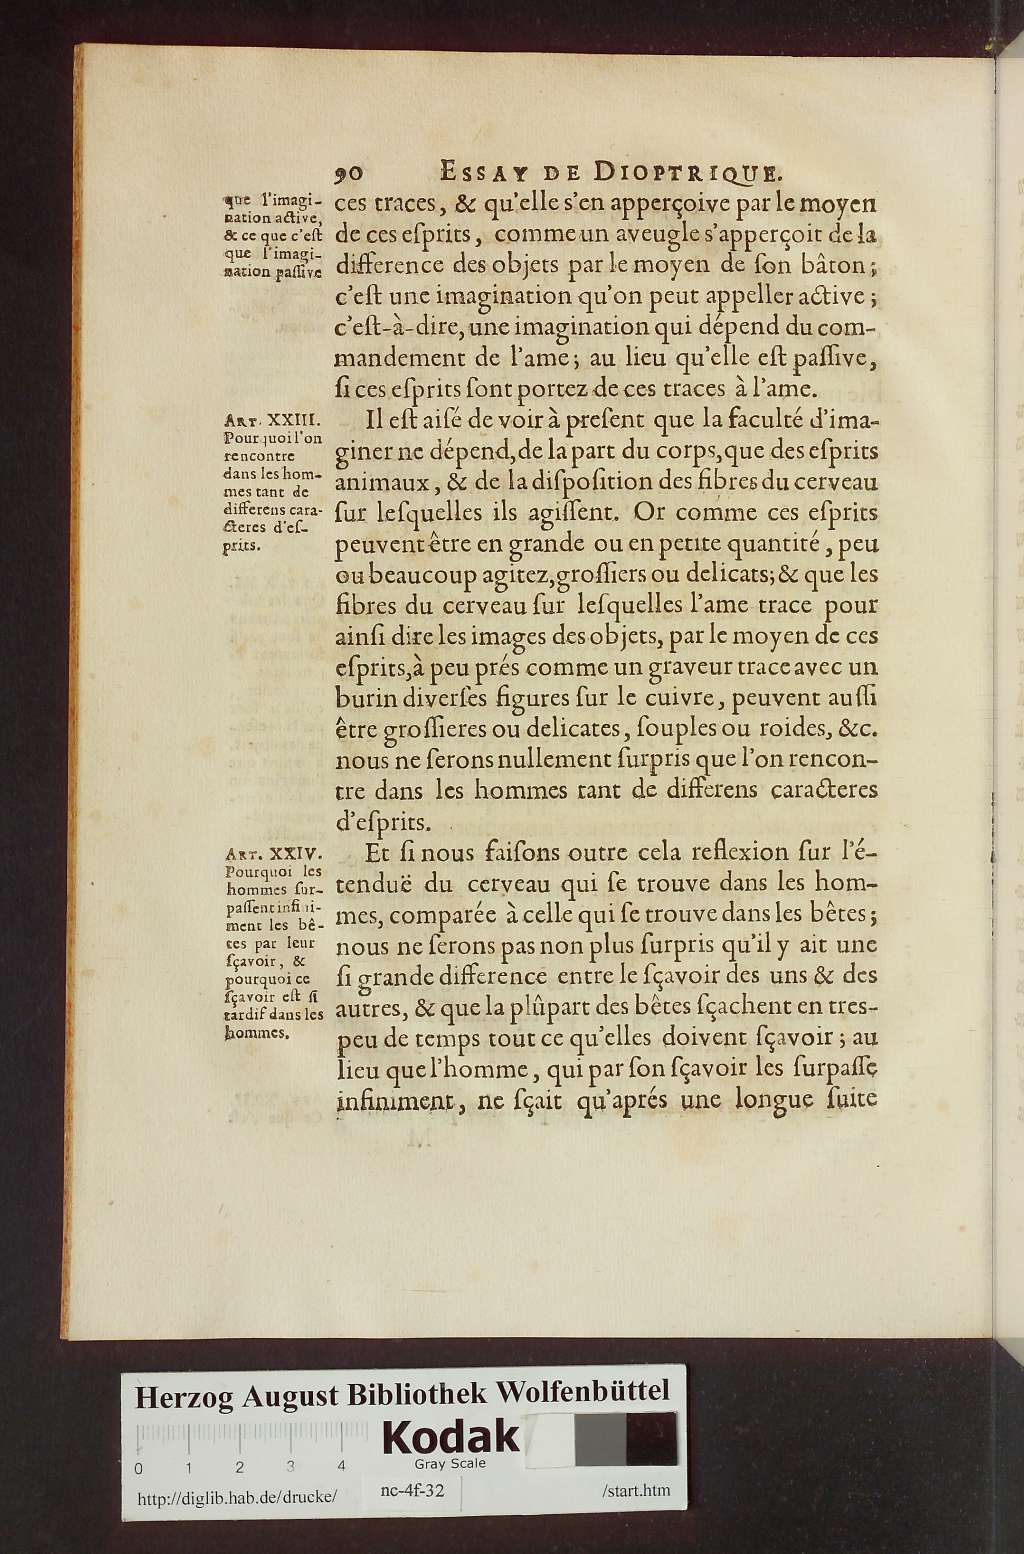 90 ESSAY DE DIOPTRIQUE.
que l'imagi-
nation active,
& ce que c'eſt
que l'imagi-
nation paſſive
ces traces, & qu'elle s'en apperçoive par le moyen
de ces eſprits, comme un aveugle s'apperçoit de la
difference des objets par le moyen de ſon bâton;
c'eſt une imagination qu'on peut appeller active;
c'eſt-à-dire, une imagination qui dépend du com-
mandement de l'ame; au lieu qu'elle eſt paſſive,
ſi ces eſprits ſont portez de ces traces à l'ame.
ART. XXIII.
Pourquoi l'on
rencontre
dans les hom-
mes tant de
differens cara-
cteres d'eſ-
prits.
Il eſt aiſé de voir à preſent que la faculté d'ima-
giner ne dépend, de la part du corps, que des eſprits
animaux, & de la diſpoſition des fibres du cerveau
ſur leſquelles ils agiſſent. Or comme ces eſprits
peuvent être en grande ou en petite quantité, peu
ou beaucoup agitez, groſſiers ou delicats; & que les
fibres du cerveau ſur leſquelles l'ame trace pour
ainſi dire les images des objets, par le moyen de ces
eſprits, à peu prés comme un graveur trace avec un
burin diverſes figures ſur le cuivre, peuvent auſſi
être groſſieres ou delicates, ſouples ou roides, &c.
nous ne ſerons nullement ſurpris que l'on rencon-
tre dans les hommes tant de differens caracteres
d'eſprits.
ART. XXIV.
Pourquoi les
hommes ſur-
paſſent infini-
ment les bê-
tes par leur
ſçavoir, &
pourquoi ce
ſçavoir eſt ſi
tardif dans les
hommes.
Et ſi nous faiſons outre cela reflexion ſur l'é-
tenduë du cerveau qui ſe trouve dans les hom-
mes, comparée à celle qui ſe trouve dans les bêtes;
nous ne ſerons pas non plus ſurpris qu'il y ait une
ſi grande difference entre le ſçavoir des uns & des
autres, & que la plûpart des bêtes ſçachent en tres-
peu de temps tout ce qu'elles doivent ſçavoir; au
lieu que l'homme, qui par ſon ſçavoir les ſurpaſſe
infiniment, ne ſçait qu'aprés une longue ſuite
Herzog August Bibliothek Wolfenbüttel
Kodak
Gray Scale
0 1 2 3 4
http://diglib.hab.de/drucke/ nc-4f-32 /start.htm